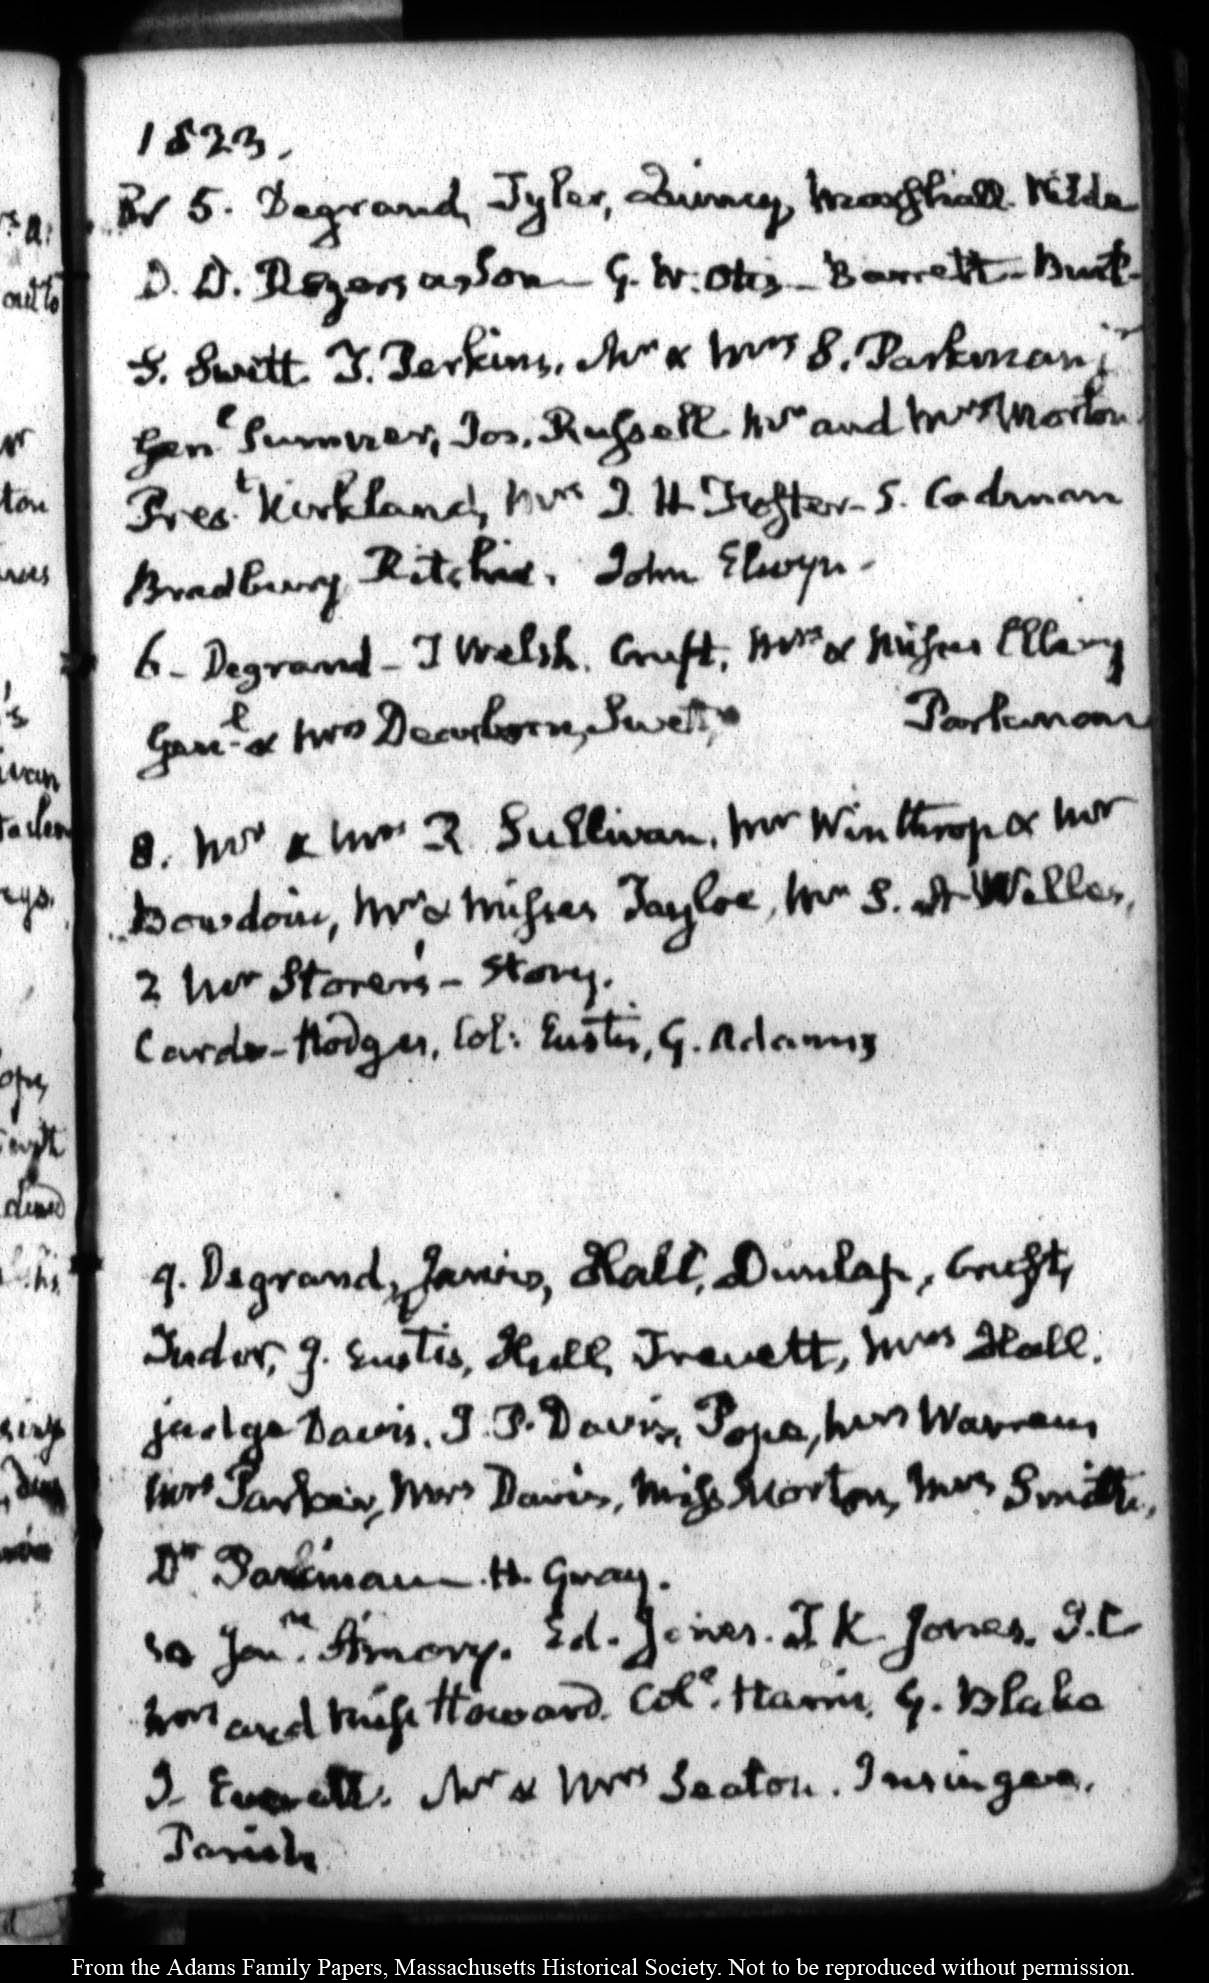 1823.
5. Degrand, Tyler, Quincy, Marshall. Wilde
D. D. Rogers & Son – G. W. Otis – Barrett –
S. Swett. T. Perkins. Mr & Mrs S. Parkman jr
Genl Sumner, Jos. Russell Mr and Mrs Morton
Prest Kirkland, Mrs I. H. Foster – S. Cadman
Bradbury Ritchie. John Elwyn.
6 – Degrand – T Welsh. Cruft, Mrs & Misses Ellery
Genl & Mrs Dearborn, Swett, Parkman
8. Mr & Mrs R Sullivan. Mr Winthrop & Mr
Bowdoin, Mr & Misses Tayloe, Mr S. A Welles,
2 Mr Storer's – Story.
Cards – Hodges, Col: Eustis, G. Adams
9. Degrand, Jarvis, Hall, Dunlap, Cruft,
Tudor, J. Eustis, Hull, Trevett, Mrs Hall.
judge Davis. I. P. Davis, Pope, Mrs Warren
Mrs Parker, Mrs Davis, Miss Morton, Mrs Smith,
Dr Parkman – H. Gray.
10 Jonn Amory. Ed. Jones. T K. Jones. I. C
Mrs and Miss Howard. Coll. Harris, G. Blake
Everett. Mr & Mrs Seaton. Insinger.
Parish